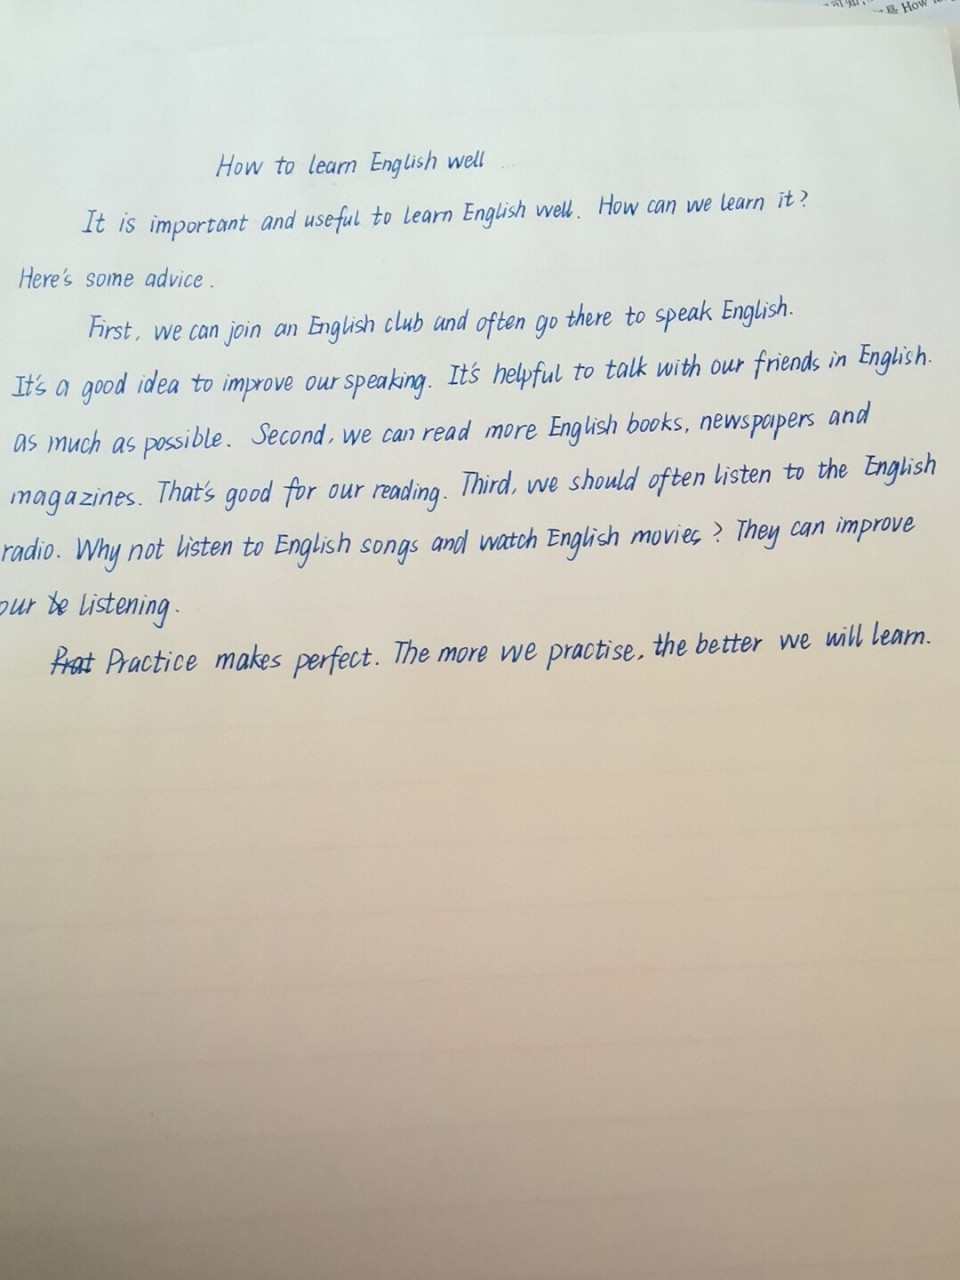 是 How
How to learn English well
It is important and useful to learn English well. How can we learn it?
Here's some advice.
First, we can join an English club and often go there to speak English.
It's a good idea to improve our speaking. It's helpful to talk with our friends in English.
as much as possible. Second, we can read more English books, newspapers and
magazines. That's good for our reading. Third, we should often listen to the English
radio. Why not listen to English songs and watch English movies? They can improve
our listening.
Practice makes perfect. The more we practise, the better we will learn.